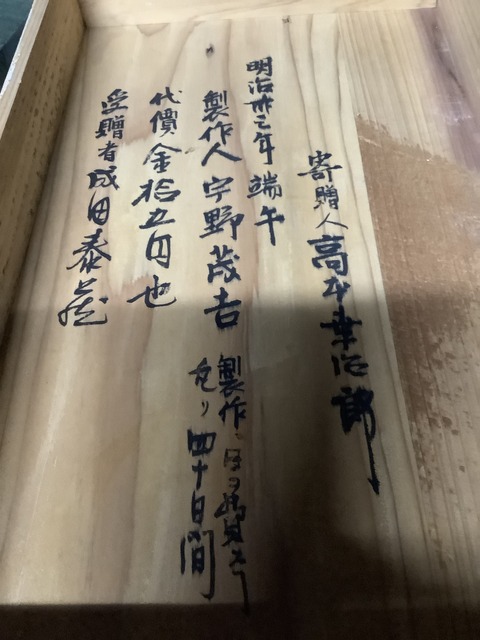 寄贈人 高木幸次郎
明治卅三年 端午
製作人 宇野茂吉
製作ニ日ヲ費ス
凡ソ四十日間
代價金拾五円也
受贈者 成田泰蔵